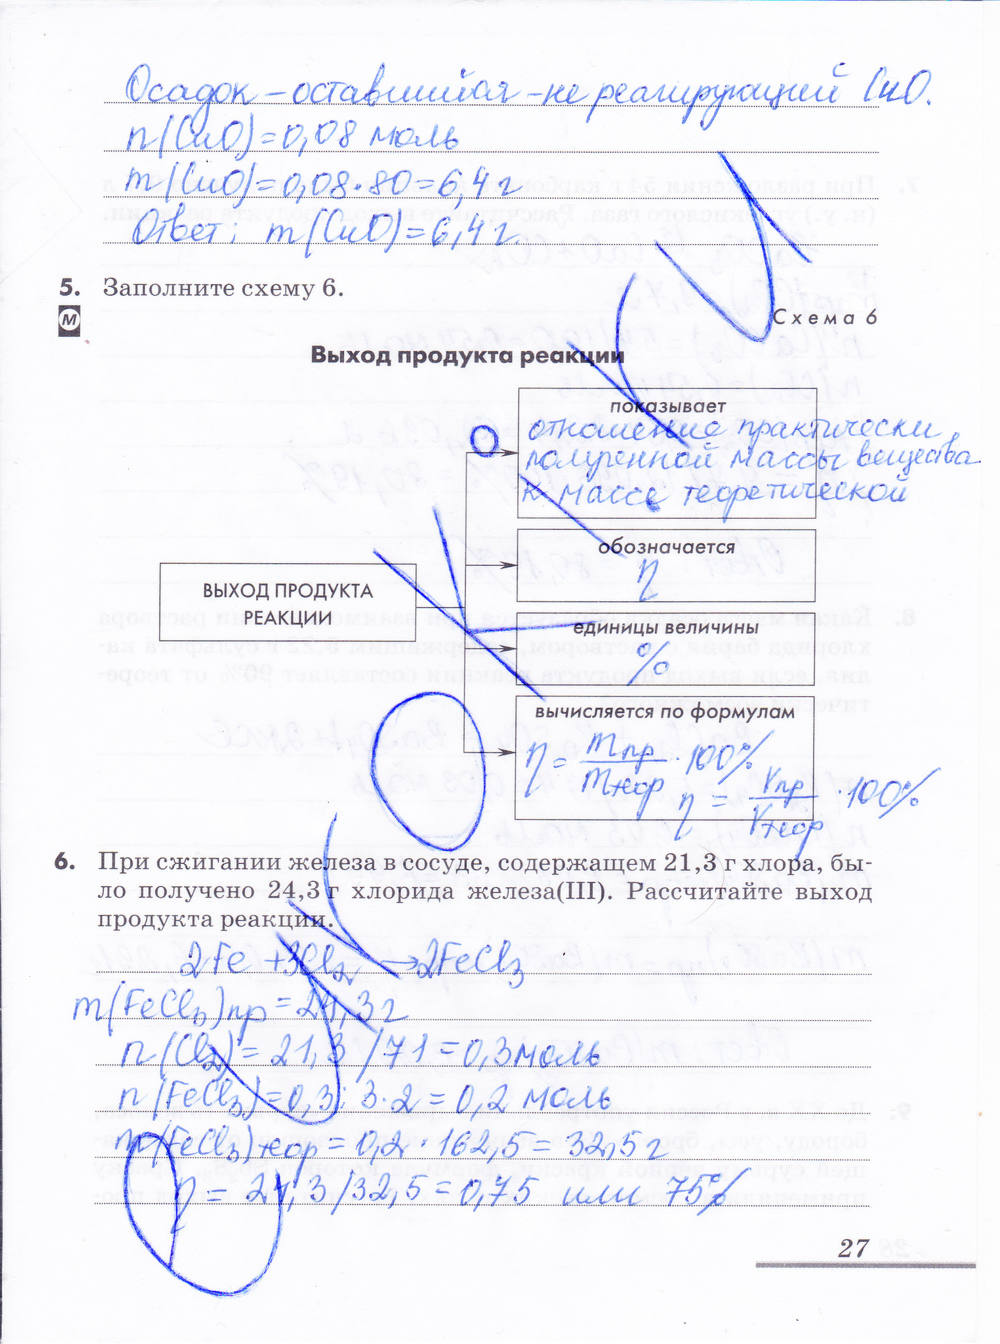 Осадок – оставшийся – не реагирующий CuO.
n(CuO)=0,08 моль
m(CuO)=0,08·80=6,4 г
Ответ: m(CuO)=6,4 г.
5. Заполните схему 6.
М
Схема 6
Выход продукта реакции
показывает
отношение практически
полученной массы вещества
к массе теоретической
обозначается
η
ВЫХОД ПРОДУКТА
РЕАКЦИИ
единицы величины
%
вычисляется по формулам
η = mпр / mтеор · 100%
η = Vпр / Vтеор · 100%
6. При сжигании железа в сосуде, содержащем 21,3 г хлора, бы-
ло получено 24,3 г хлорида железа(III). Рассчитайте выход
продукта реакции.
2Fe+3Cl₂ →2FeCl₃
m(FeCl₃)пр = 24,3 г
n(Cl₂) = 21,3/71=0,3 моль
n(FeCl₃)=0,3:3·2=0,2 моль
m(FeCl₃)теор = 0,2·162,5=32,5 г
η = 24,3/32,5=0,75 или 75%
27